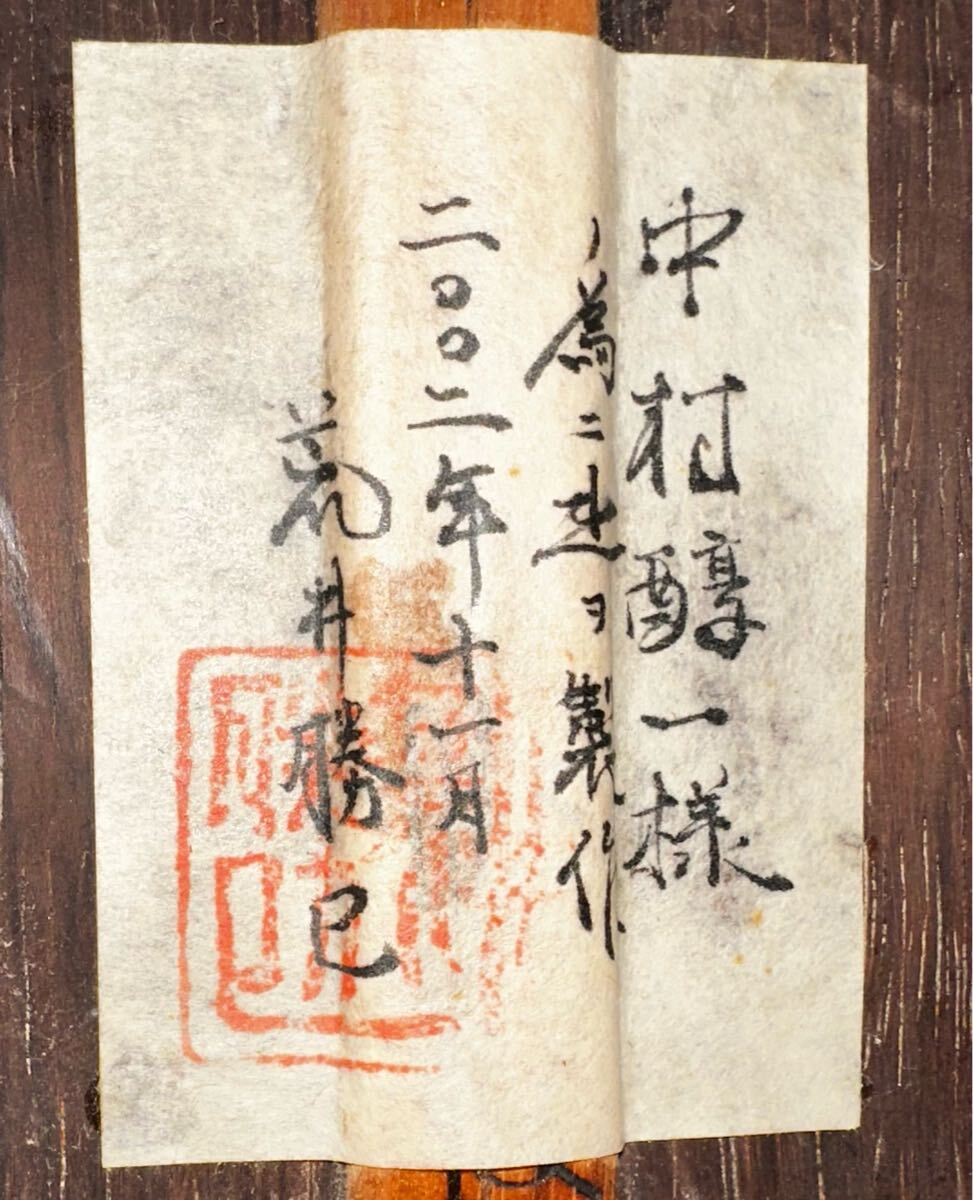 中村醇一様
ノ為ニ是ヲ製作
二〇〇二年十一月
荒井勝巳